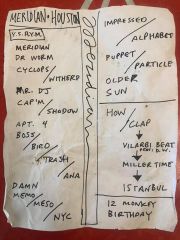 MERIDIAN • HOUSTON
Y.S.R.Y.M.
MERIDIAN
DR WORM
CYCLOPS
/WITHERD
MR. DJ
CAP'M
/SHADOW
APT. 4
BOSS/
BIRD/
TRASH
/ANA
DAMN
MEMO/
MESO/
NYC
Meridian
IMPRESSED/
ALPHABET
PUPPET/
PARTICLE
OLDER
SUN
HOW/
CLAP
VILARBI BEAT
MILLER TIME
ISTANBUL
12 MONKEY
BIRTHDAY